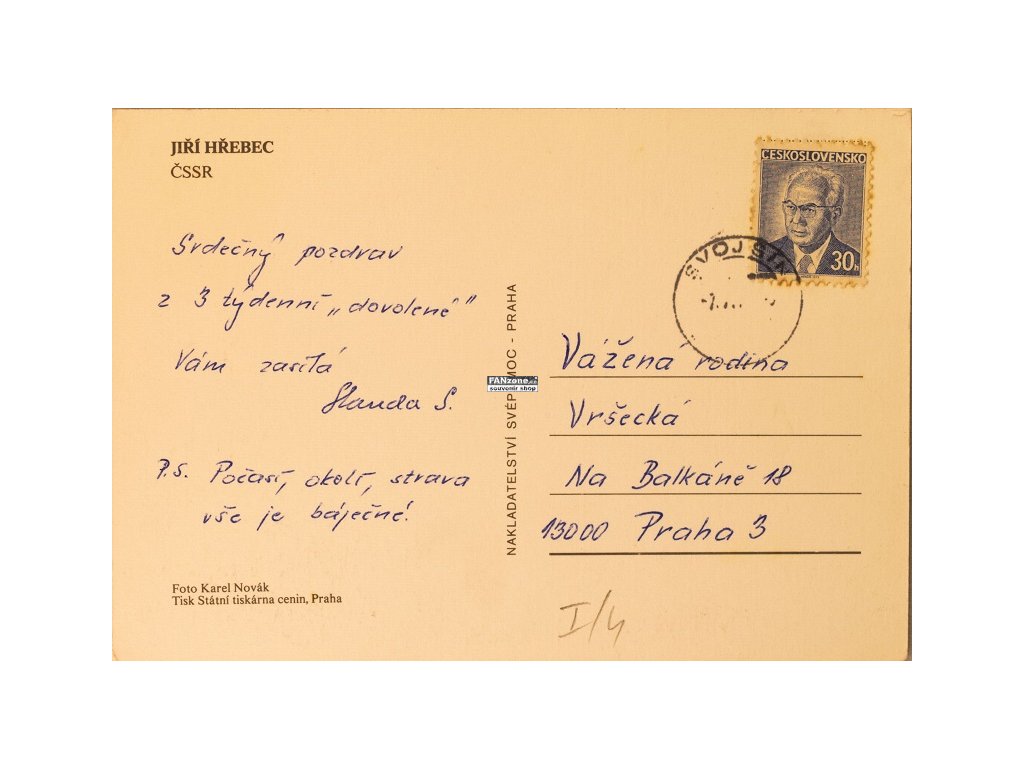 JIŘÍ HŘEBEC
ČSSR
Srdečný pozdrav
z 3 týdenní „dovolené"
Vám zasílá
Standa S.
P.S. Počasí, okolí, strava
vše je báječné!
Foto Karel Novák
Tisk Státní tiskárna cenin, Praha
NAKLADATELSTVÍ SVÉPOMOC - PRAHA
FANzone.cz
souvenir shop
ČESKOSLOVENSKO
30h
SVOJŠÍN
Vážená rodina
Vršecká
Na Balkáně 18
13000 Praha 3
I/4